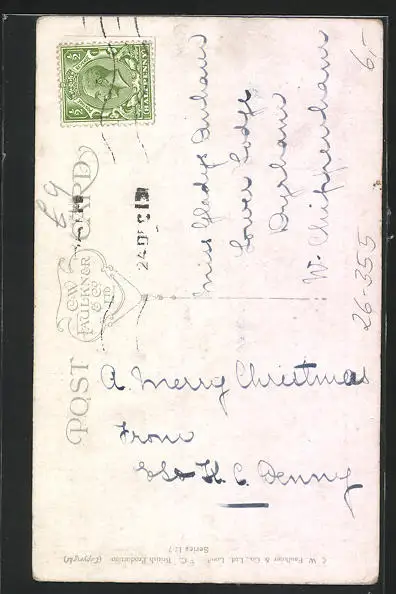 HALFPENNY
POST CARD
C.W. FAULKNER & CO LTD
24 DEC
Miss Gladys Durham
Lower Lodge
Dyrham
W. Chippenham
A Merry Christmas
From
H. C. Denny
26-355
6,-
C. W. Faulkner & Co., Ltd. London E.C. British Production (Copyright)
Series